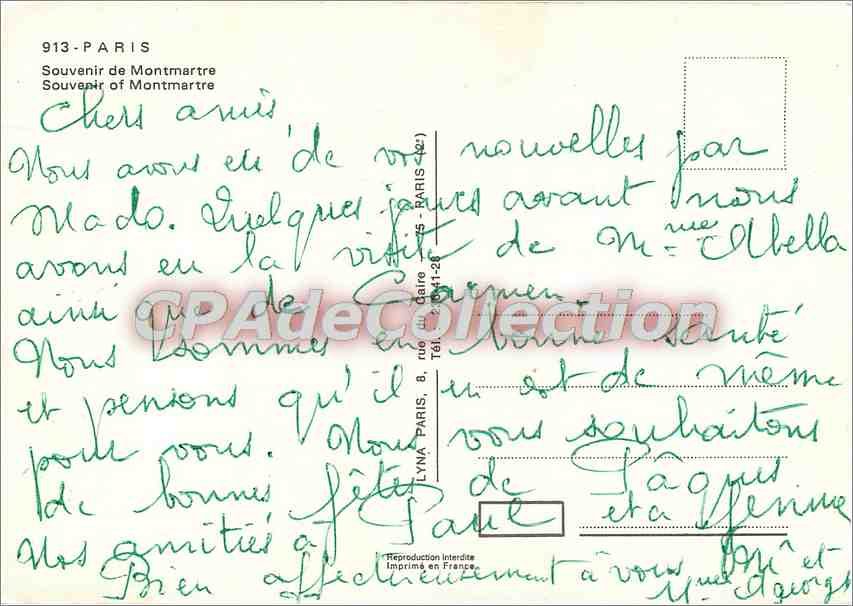 913 - PARIS
Souvenir de Montmartre
Souvenir of Montmartre
Chers amis,
Nous avons eu de vos nouvelles par
Mado. Quelques jours avant nous
avons eu la visite de Mme Abella
ainsi que de Carmen.
Nous sommes en bonne santé
et pensons qu'il en est de même
pour vous. Nous vous souhaitons
de bonnes fêtes de Pâques
Nos amitiés à Paul et à
Bien affectueusement à vous Mr et
Mme
LYNA PARIS, 8, rue du Caire 75 - PARIS (2e)
Tél. 236-41-28
Reproduction Interdite
Imprimé en France
CPAdeCollection.com